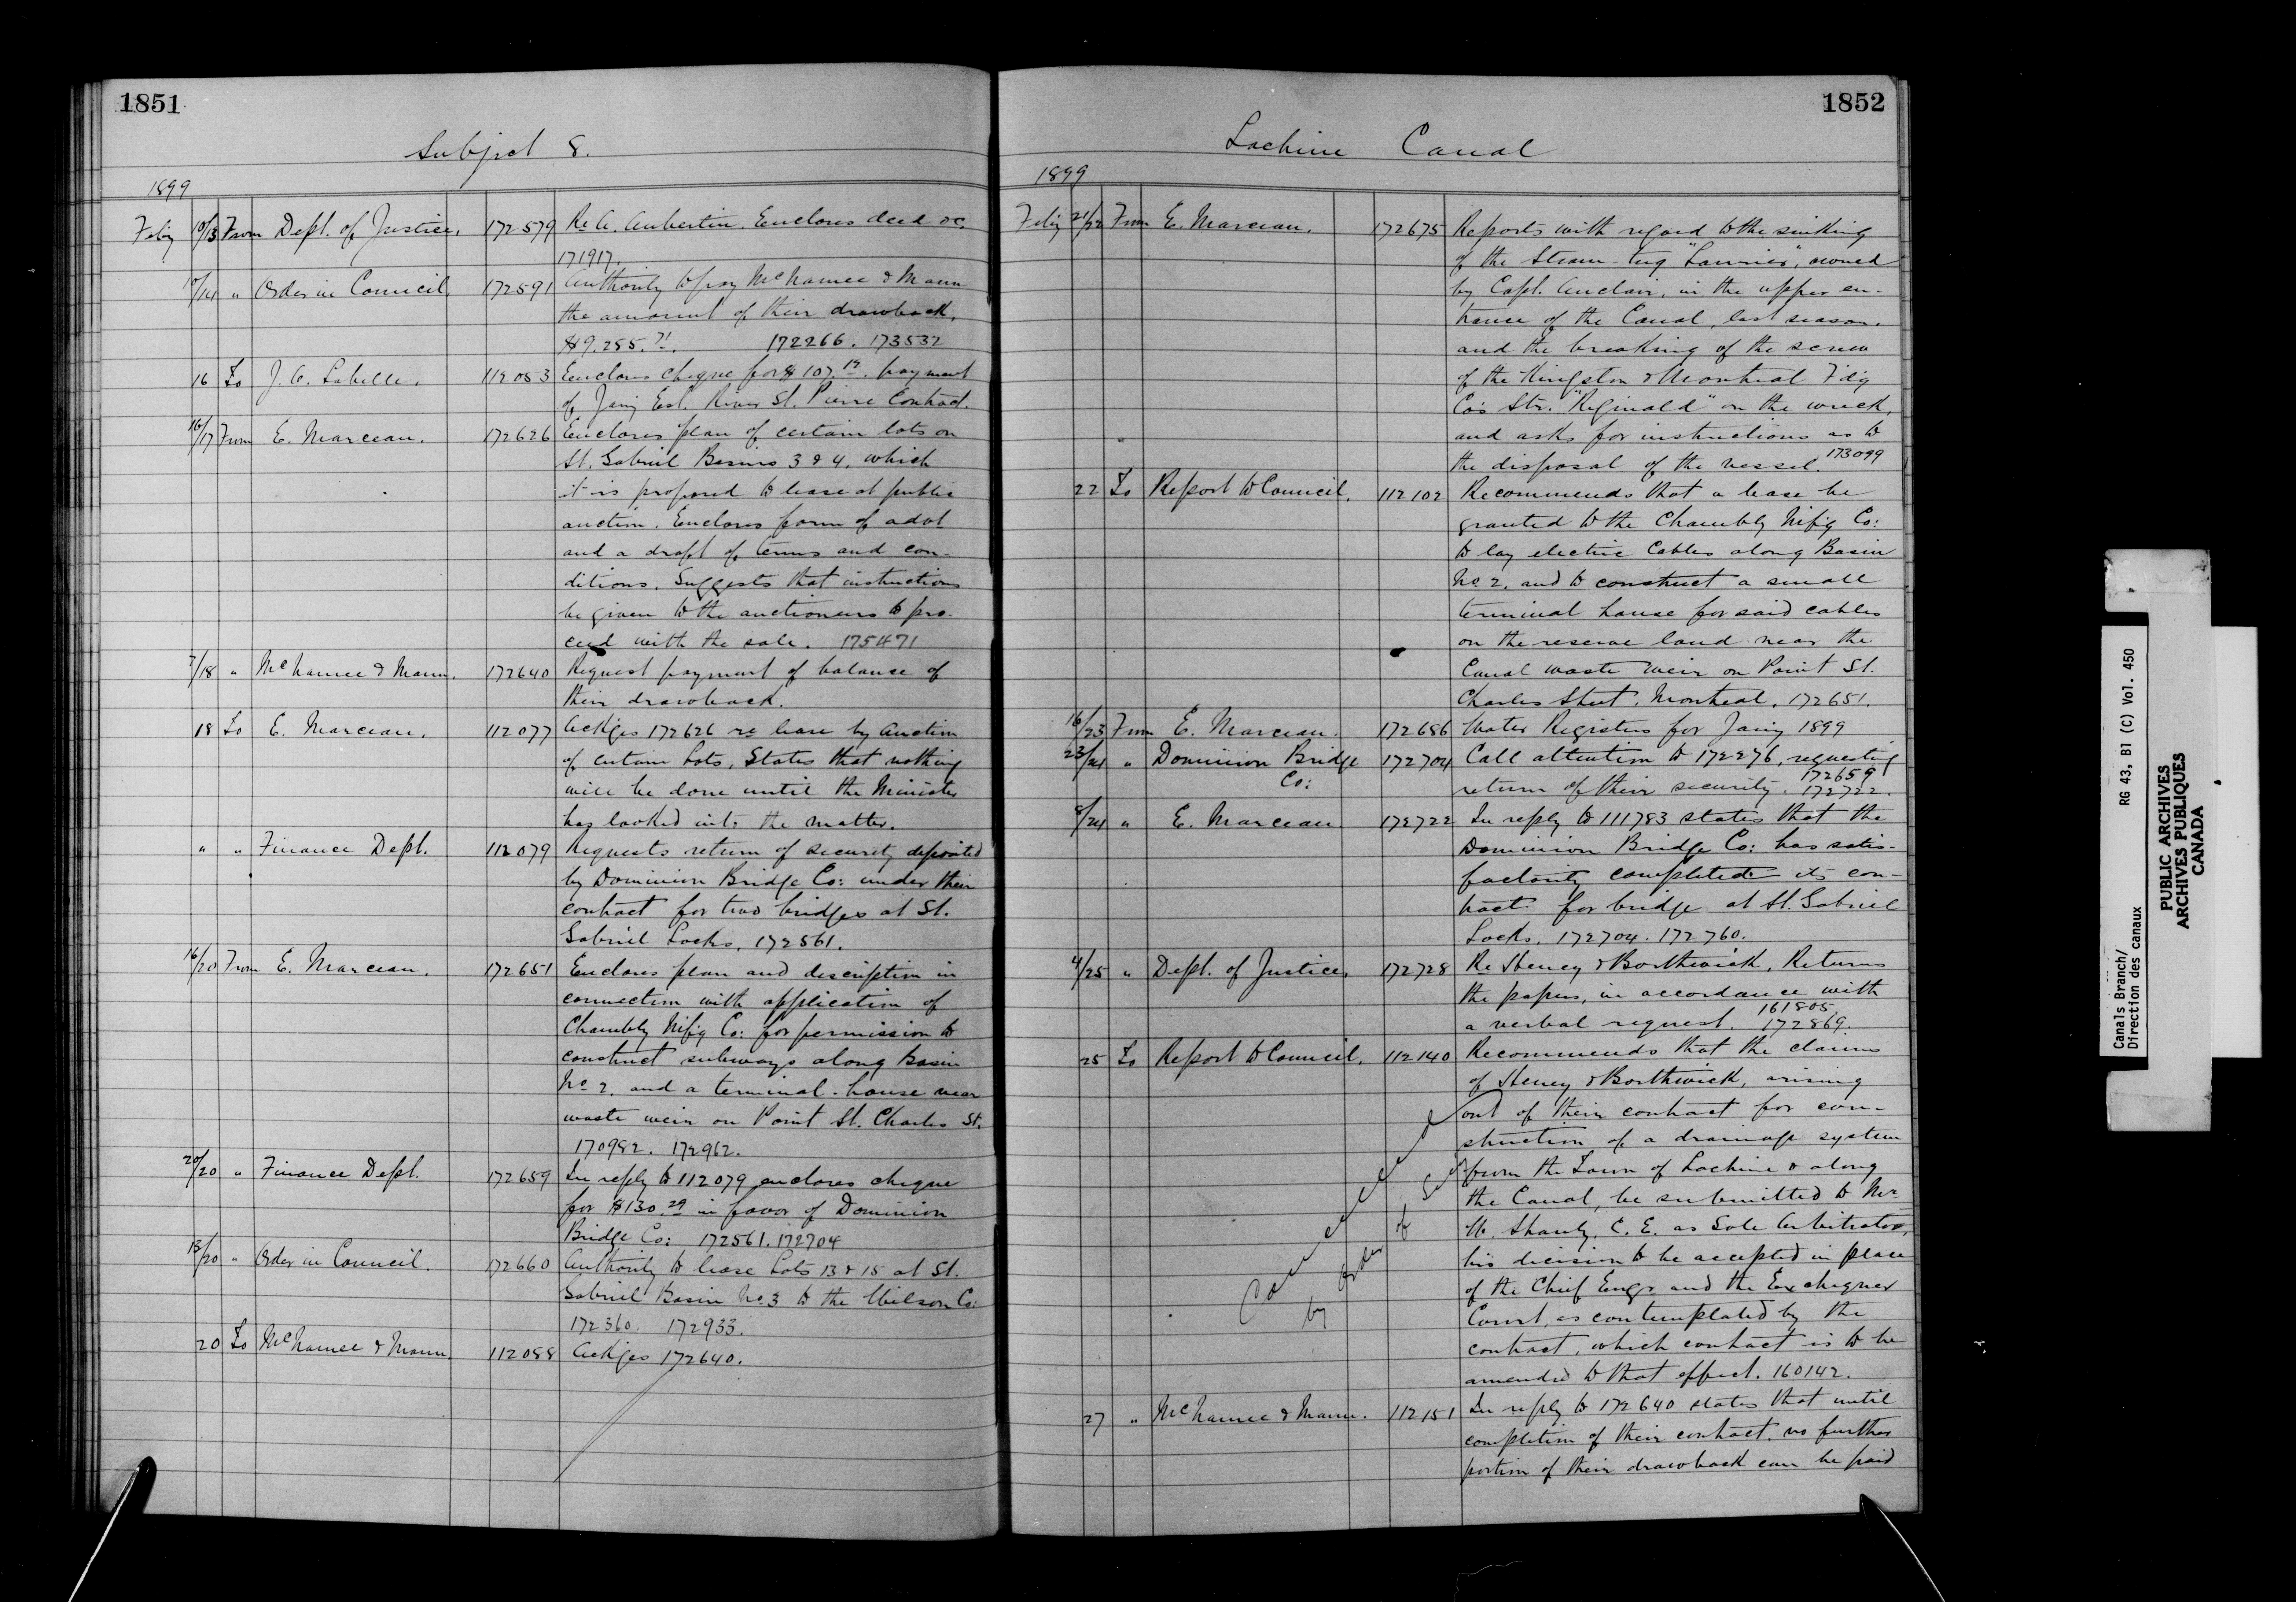 1851
Subject 8.
1899
Feby 10/13 From Dept. of Justice. 172579 Re A. Aubertin. Encloses deed &c.
171917.
10/14 " Order in Council. 172591 Authority to pay McNamee & Mann
the amount of their drawback,
$9.255.71. 172266. 173532
16 To J. C. Labelle. 112053 Encloses cheque for $107.19. payment
of Jany Est. River St. Pierre Contract.
16/17 From E. Marceau. 172626 Encloses plan of certain lots on
St. Gabriel Basins 3 & 4. which
it is proposed to lease at public
auction. Encloses form of advt
and a draft of terms and con-
ditions. Suggests that instructions
be given to the auctioneers to pro-
ceed with the sale. 175471
7/18 " McNamee & Mann. 172640 Request payment of balance of
their drawback.
18 To E. Marceau. 112077 Ackges 172626 re lease by Auction
of certain Lots, States that nothing
will be done until the Minister
has looked into the matter.
" " Finance Dept. 112079 Requests return of security deposited
by Dominion Bridge Co: under their
contract for two bridges at St.
Gabriel Locks, 172561.
16/20 From E. Marceau. 172651 Encloses plan and description in
connection with application of
Chambly Mfg Co: for permission to
construct subways along Basin
No 2. and a terminal-house near
waste weir on Point St. Charles St.
170982. 172962.
20/20 " Finance Dept. 172659 In reply to 112079 encloses cheque
for $130.29 in favor of Dominion
Bridge Co: 172561. 172704
13/20 " Order in Council. 172660 Authority to lease Lots 13 & 15 at St.
Gabriel Basin No 3 to the Wilson Co:
172360. 172933.
20 To McNamee & Mann 112088 Ackges 172640.
1852
Lachine Canal
1899
Feby 21/22 From E. Marceau. 172675 Reports with regard to the sinking
of the Steam-tug "Laurier", owned
by Capt. Auclair, in the upper en-
trance of the Canal, last season.
and the breaking of the screw
of the Kingston & Montreal Fdg
Co's Str. "Reginald" on the wreck,
and asks for instructions as to
the disposal of the vessel. 173099
22 To Report to Council. 112102 Recommends that a lease be
granted to the Chambly Mfg Co:
to lay electric Cables along Basin
No 2. and to construct a small
terminal house for said cables
on the reserve land near the
Canal waste weir on Point St.
Charles Street, Montreal. 172651.
16/23 From E. Marceau. 172686 Water Registers for Jany 1899
23/24 " Dominion Bridge 172704 Call attention to 172276, requesting
Co: return of their security. 172659
172722.
8/24 " E. Marceau 172722 In reply to 111783 states that the
Dominion Bridge Co: has satis-
factorily completed its con-
tract for bridge at St. Gabriel
Locks. 172704. 172760.
4/25 " Dept. of Justice, 172728 Re Heney & Borthwick, Returns
the papers, in accordance with
a verbal request. 161805,
172869.
25 To Report to Council. 112140 Recommends that the claims
of Heney & Borthwick, arising
out of their contract for con-
struction of a drainage system
from the Town of Lachine & along
the Canal, be submitted to Mr
W. Shanly, C. E. as Sole Arbitrator,
his decision to be accepted in place
of the Chief Engr and the Exchequer
Court, as contemplated by the
contract, which contract is to be
amended to that effect. 160142.
Cancelled
by order of
27 " McNamee & Mann. 112151 In reply to 172640 states that until
completion of their contract, no further
portion of their drawback can be paid
Canals Branch/ RG 43, B1 (C) Vol. 450
Direction des canaux
PUBLIC ARCHIVES
ARCHIVES PUBLIQUES
CANADA